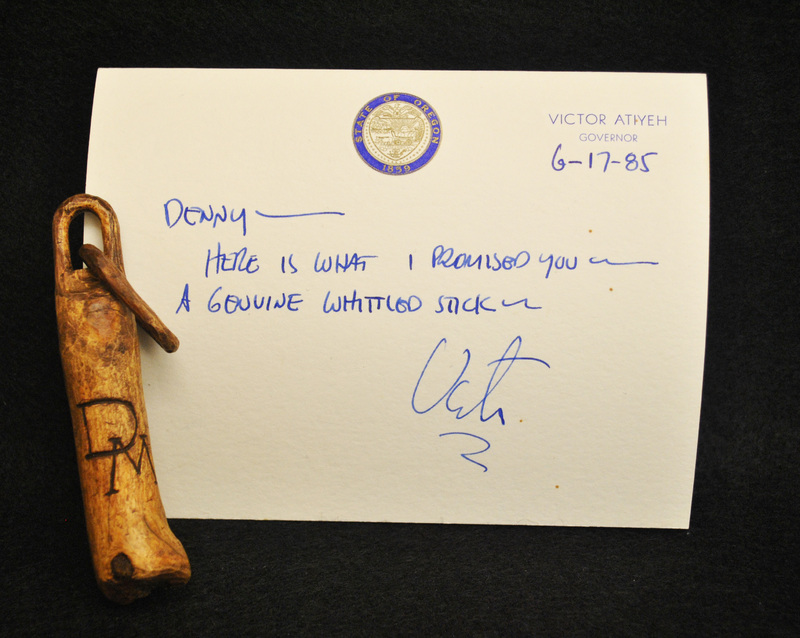 STATE OF OREGON
1859
VICTOR ATIYEH
GOVERNOR
6-17-85
DENNY
HERE IS WHAT I PROMISED YOU
A GENUINE WHITTLED STICK
Vic
DM